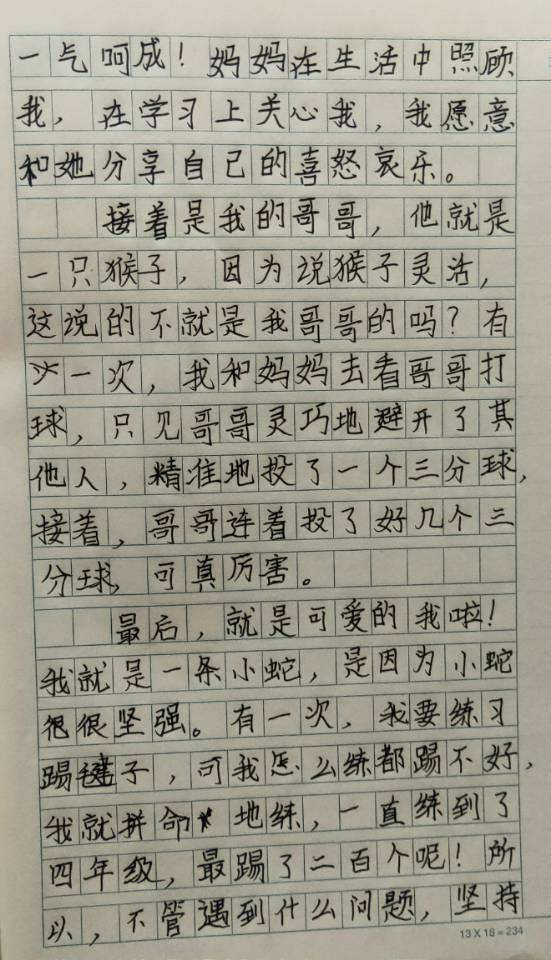 一气呵成！妈妈在生活中照顾
我，在学习上关心我，我愿意
和她分享自己的喜怒哀乐。
接着是我的哥哥，他就是
一只猴子，因为说猴子灵活，
这说的不就是我哥哥的吗？有
一次，我和妈妈去看哥哥打
球，只见哥哥灵巧地避开了其
他人，精准地投了一个三分球，
接着，哥哥连着投了好几个三
分球，可真厉害。
最后，就是可爱的我啦！
我就是一条小蛇，是因为小蛇
很很坚强。有一次，我要练习
踢毽子，可我怎么练都踢不好，
我就拼命地练，一直练到了
四年级，最踢了二百个呢！所
以，不管遇到什么问题，坚持
13 X 18 = 234